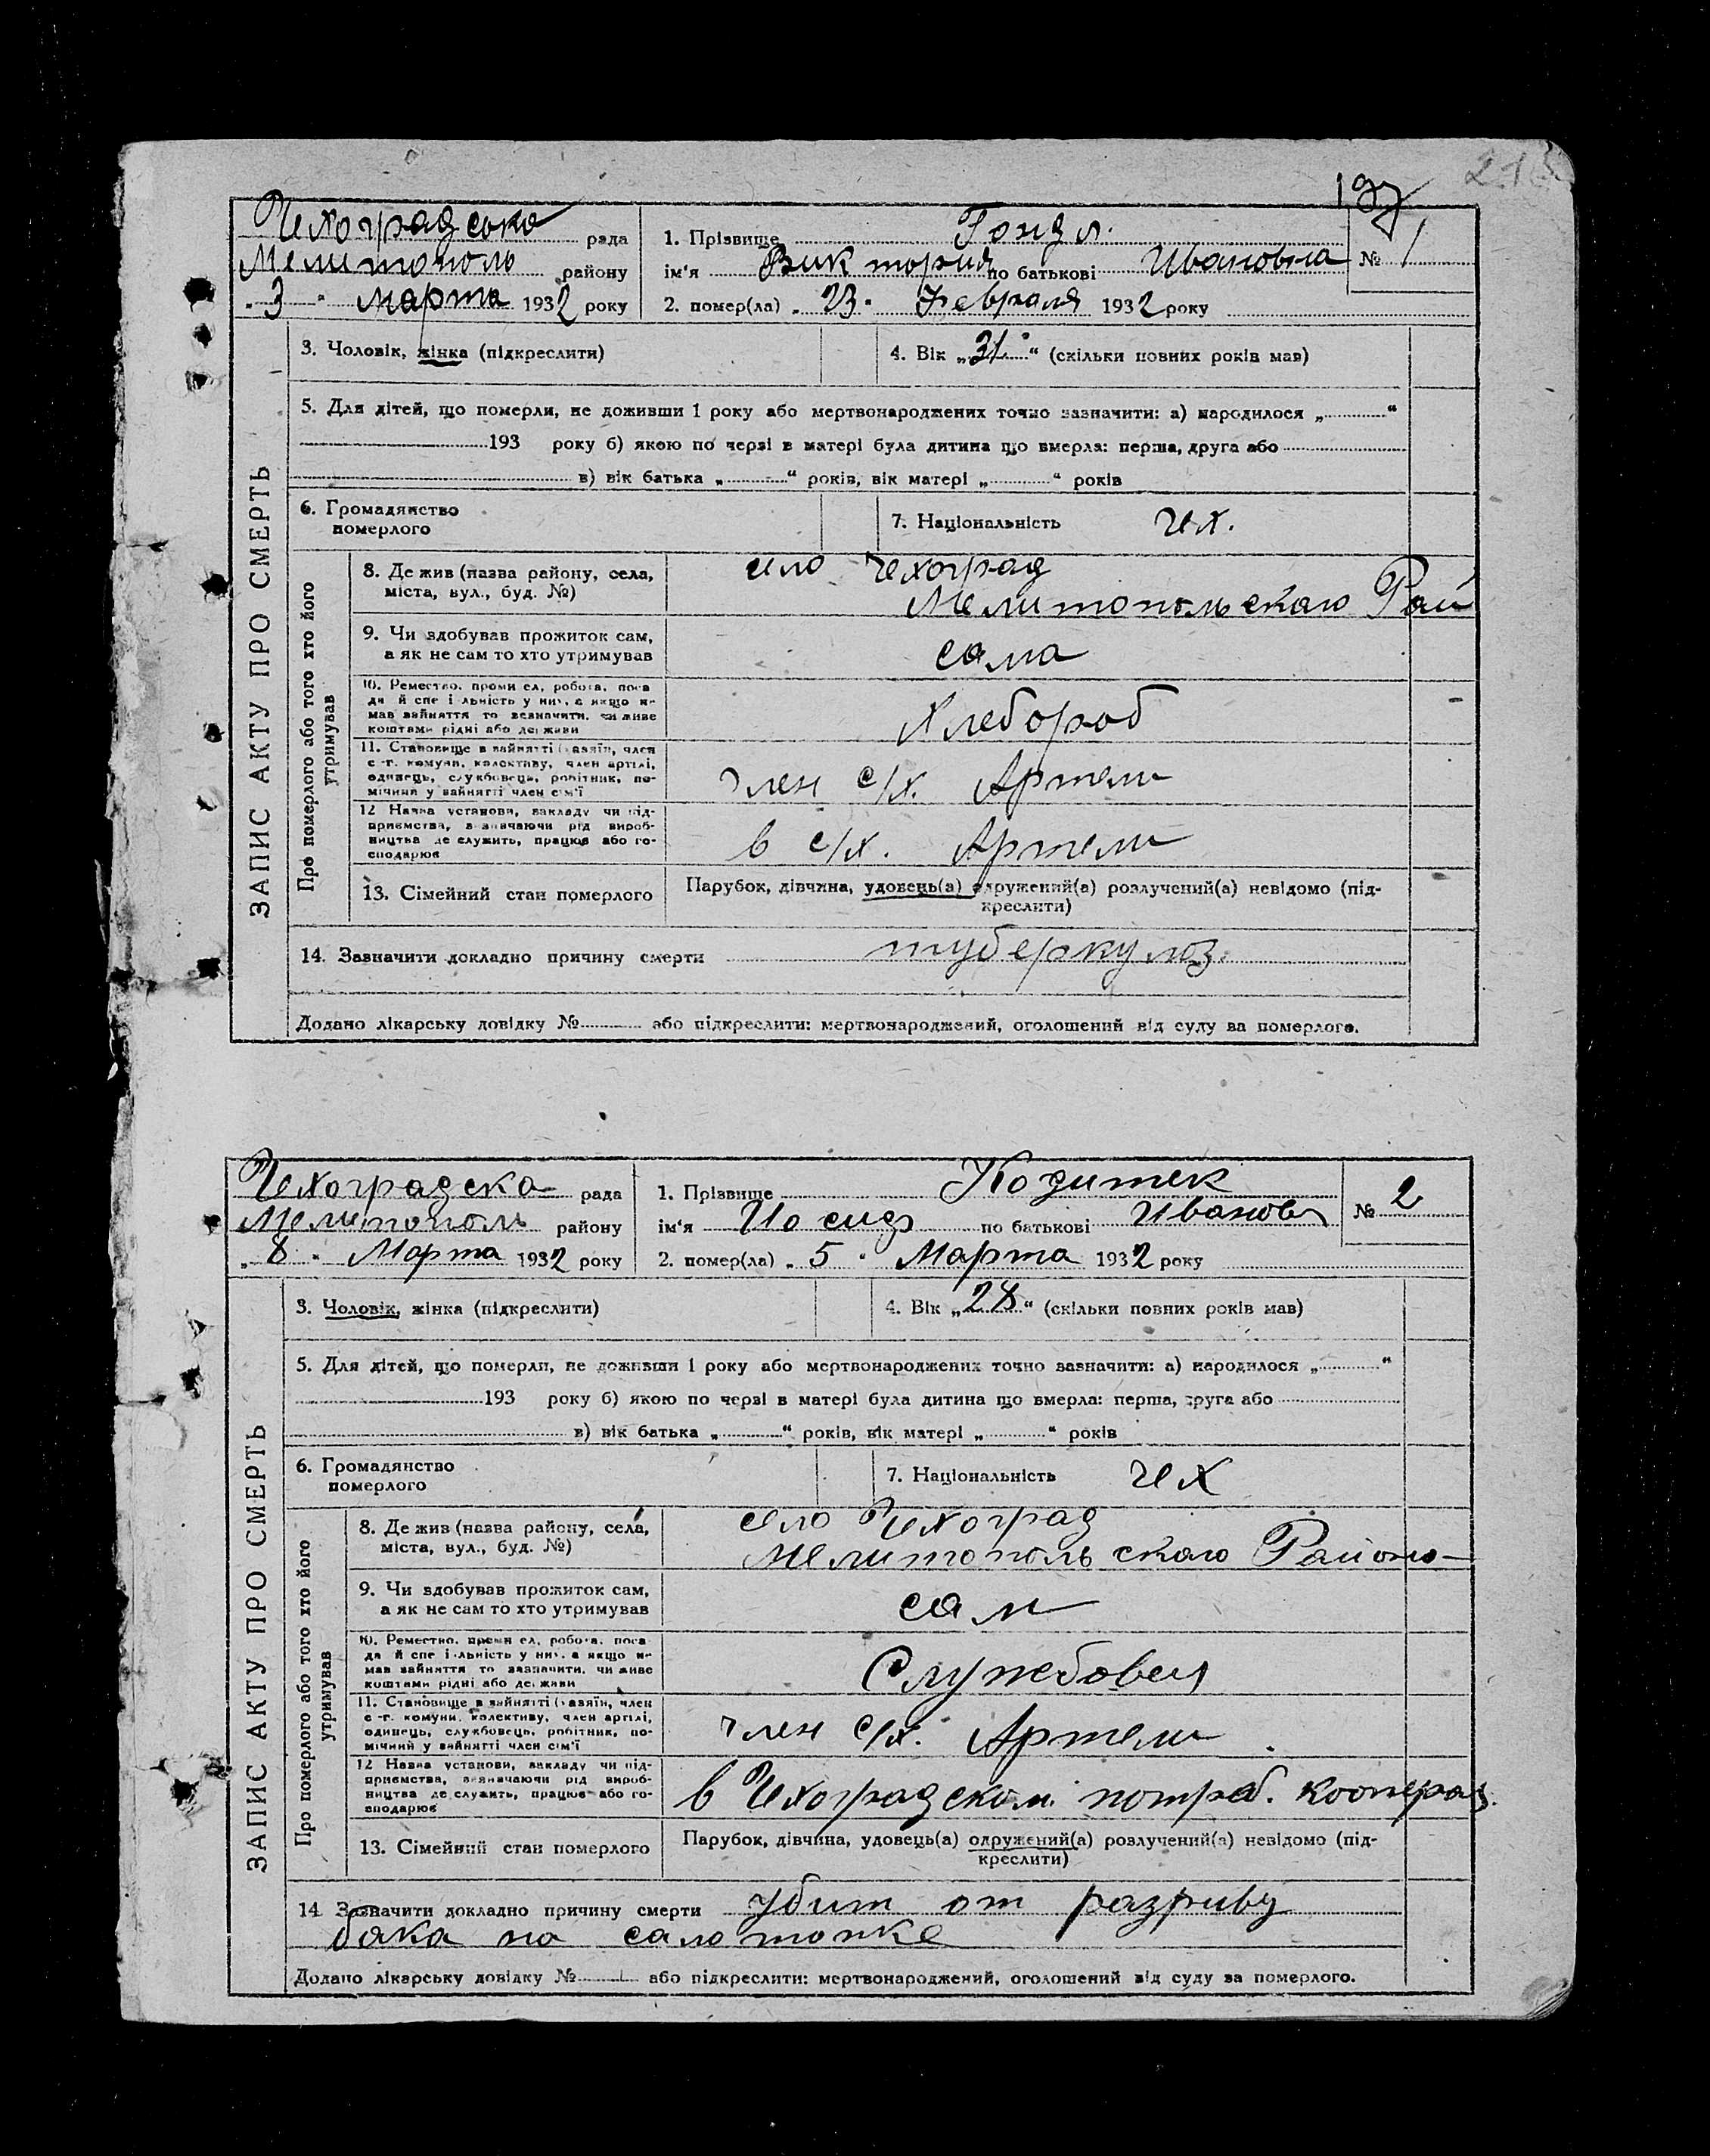 197
Чехоградська рада
Мелитополь району
„3“ марта 1932 року
1. Прізвище Гондл.
ім'я Виктория по батькові Ивановна
2. помер(ла) „23“ Февраля 1932 року
№ 1
ЗАПИС АКТУ ПРО СМЕРТЬ
3. Чоловік, жінка (підкреслити)
4. Вік „31“ (скільки повних років мав)
5. Для дітей, що померли, не доживши 1 року або мертвонароджених точно зазначити: а) народилося „ “
193 року б) якою по черзі в матері була дитина що вмерла: перша, друга або
в) вік батька „ “ років, вік матері „ “ років
6. Громадянство
померлого
7. Національність чех.
Про померлого або того хто його
утримував
8. Де жив (назва району, села,
міста, вул., буд. №)
село Чехоград
Мелитопольскаго Рай
9. Чи здобував прожиток сам,
а як не сам то хто утримував
сама
10. Ремество, промисел, робота, поса
да й спеціальність у них, а якщо не
мав зайняття то зазначити, чи живе
коштами рідні або держави
Хлебороб
11. Становище в зайнятті (хазяїн, член
с.-г. комуни, колективу, член артілі,
одинець, службовець, робітник, по-
мічний у зайнятті член сім'ї
член с/х. Артели
12 Назва установи, закладу чи під-
приємства, зазначаючи рід вироб-
ництва де служить, працює або го-
сподарює
в с/х. Артели
13. Сімейний стан померлого
Парубок, дівчина, удовець(а) одружений(а) розлучений(а) невідомо (під-
креслити)
14. Зазначити докладно причину смерти туберкулоз.
Додано лікарську довідку № або підкреслити: мертвонароджений, оголошений від суду за померлого.
Чехоградска рада
Мелитополь району
„8“ Марта 1932 року
1. Прізвище Кодитек
ім'я Иосиф по батькові Иванов
2. помер(ла) „5“ Марта 1932 року
№ 2
ЗАПИС АКТУ ПРО СМЕРТЬ
3. Чоловік, жінка (підкреслити)
4. Вік „28“ (скільки повних років мав)
5. Для дітей, що померли, не доживши 1 року або мертвонароджених точно зазначити: а) народилося „ “
193 року б) якою по черзі в матері була дитина що вмерла: перша, друга або
в) вік батька „ “ років, вік матері „ “ років
6. Громадянство
померлого
7. Національність чех
Про померлого або того хто його
утримував
8. Де жив (назва району, села,
міста, вул., буд. №)
село Чехоград
Мелитопольскаго Района
9. Чи здобував прожиток сам,
а як не сам то хто утримував
сам
10. Ремество, промисел, робота, поса
да й спеціальність у них, а якщо не
мав зайняття то зазначити, чи живе
коштами рідні або держави
Службовец
11. Становище в зайнятті (хазяїн, член
с.-г. комуни, колективу, член артілі,
одинець, службовець, робітник, по-
мічний у зайнятті член сім'ї
член с/х. Артели
12 Назва установи, закладу чи під-
приємства, зазначаючи рід вироб-
ництва де служить, працює або го-
сподарює
в Чехоградском потреб. кооперац.
13. Сімейний стан померлого
Парубок, дівчина, удовець(а) одружений(а) розлучений(а) невідомо (під-
креслити)
14. Зазначити докладно причину смерти убит от разриву
бака на салотопке
Додано лікарську довідку № або підкреслити: мертвонароджений, оголошений від суду за померлого.